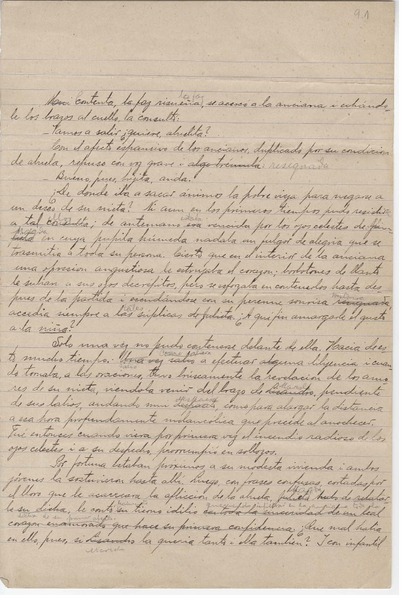 9.1
Muy contenta, la faz risueña, se acercó a la anciana i echándo-
le los brazos al cuello, la consultó:
—Vamos a salir ¿quiere, abuelita?
Con el afecto expansivo de los ancianos, duplicado por su condición
de abuela, repuso con voz grave i algo trémula resignada
—Bueno, pues, hijita, anda!
¿De donde iba a sacar ánimo la pobre vieja para negarse a
un deseo de su nieta? Ni aun en los primeros tiempos pudo resistir
a tal; de antemano era vencida por los ojos celestes de
en cuya pupila húmeda nadaba un fulgor de alegría que se
trasmitía a toda su persona. Cierto que en el interior de la anciana
una opresión angustiosa le estrujaba el corazón; borbotones de llanto
le subían a sus ojos decrépitos, pero se esforzaba en contenerlos hasta des-
pues de la partida i escudándose con su perenne sonrisa resignada
accedía siempre a las súplicas de Julieta. ¿A qué fin amargarle el gusto
a la niña?
Solo una vez no pudo contenerse delante de ella. Hacía de es-
to mucho tiempo. Una vez salió a efectuar alguna diligencia i cuan-
do tornaba, a las oraciones, tuvo bruscamente la revelación de los amo-
res de su nieta, viéndola venir del brazo de Lisandro, pendiente
de sus labios, andando mui despacio, como para alargar la distancia
a esa hora profundamente melancólica que precede al anochecer.
Fue entonces cuando viera por primera vez el incendio radioso de los
ojos celestes i a su despecho, prorrumpió en sollozos.
Por fortuna estaban próximos a su modesta vivienda i ambos
jóvenes la sostuvieron hasta allí. Luego, con frases confusas, cortadas por
el lloro que le causara la aflicción de la abuela, hubo de relatar-
le su dicha, le contó su tierno idilio con toda la sinceridad de un leal
corazón enamorado que hace su primera confidencia. ¿Que mal había
en ello, pues, si Lisandro la quería tanto i ella también? I con infantil